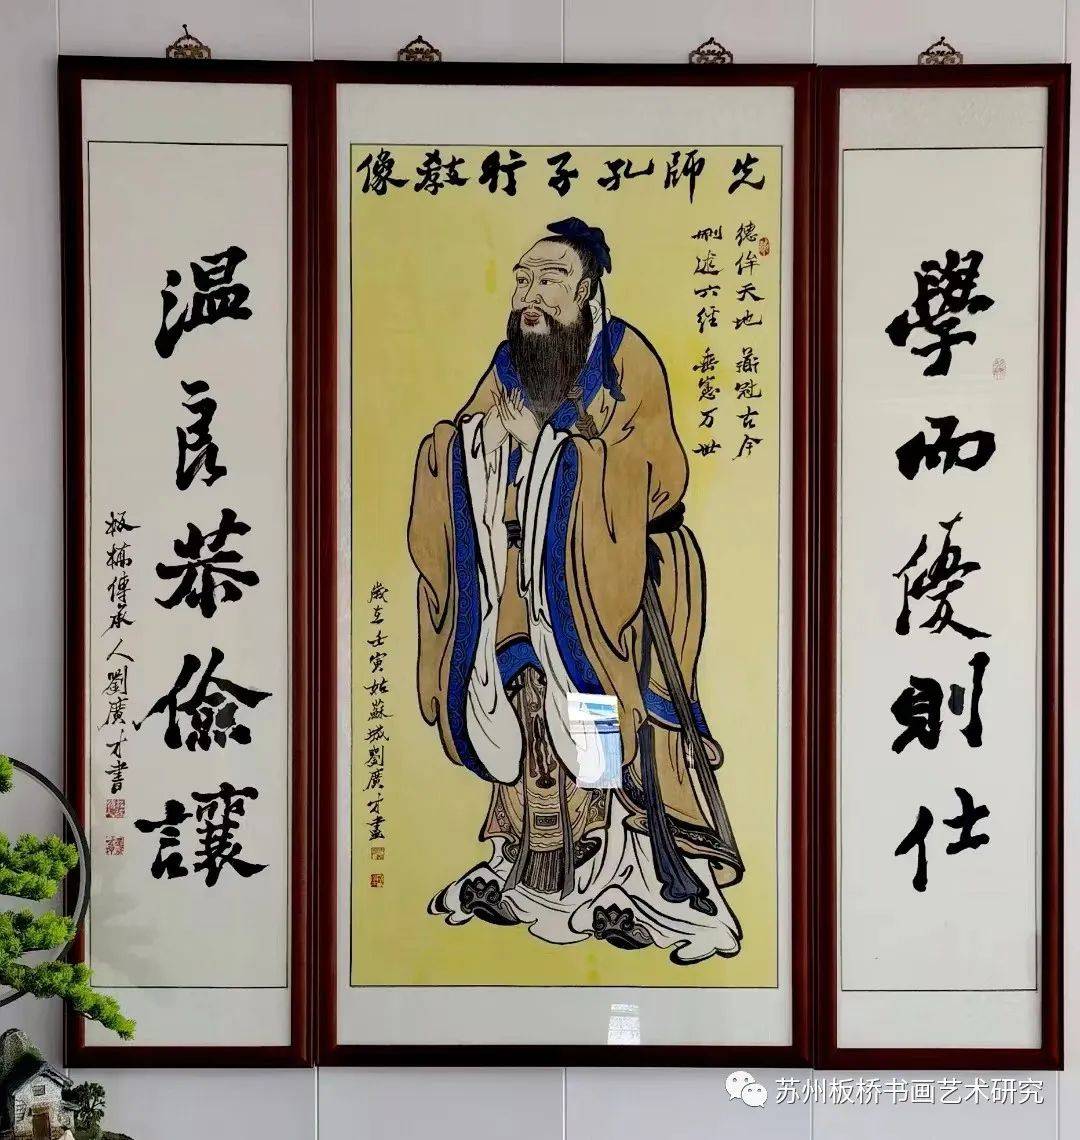 先師孔子行教像
學而優則仕
德侔天地 道冠古今
删述六經 垂憲万世
歲在壬寅姑蘇城劉廣才畫
温良恭儉讓
板橋傳承人劉廣才書
苏州板桥书画艺术研究